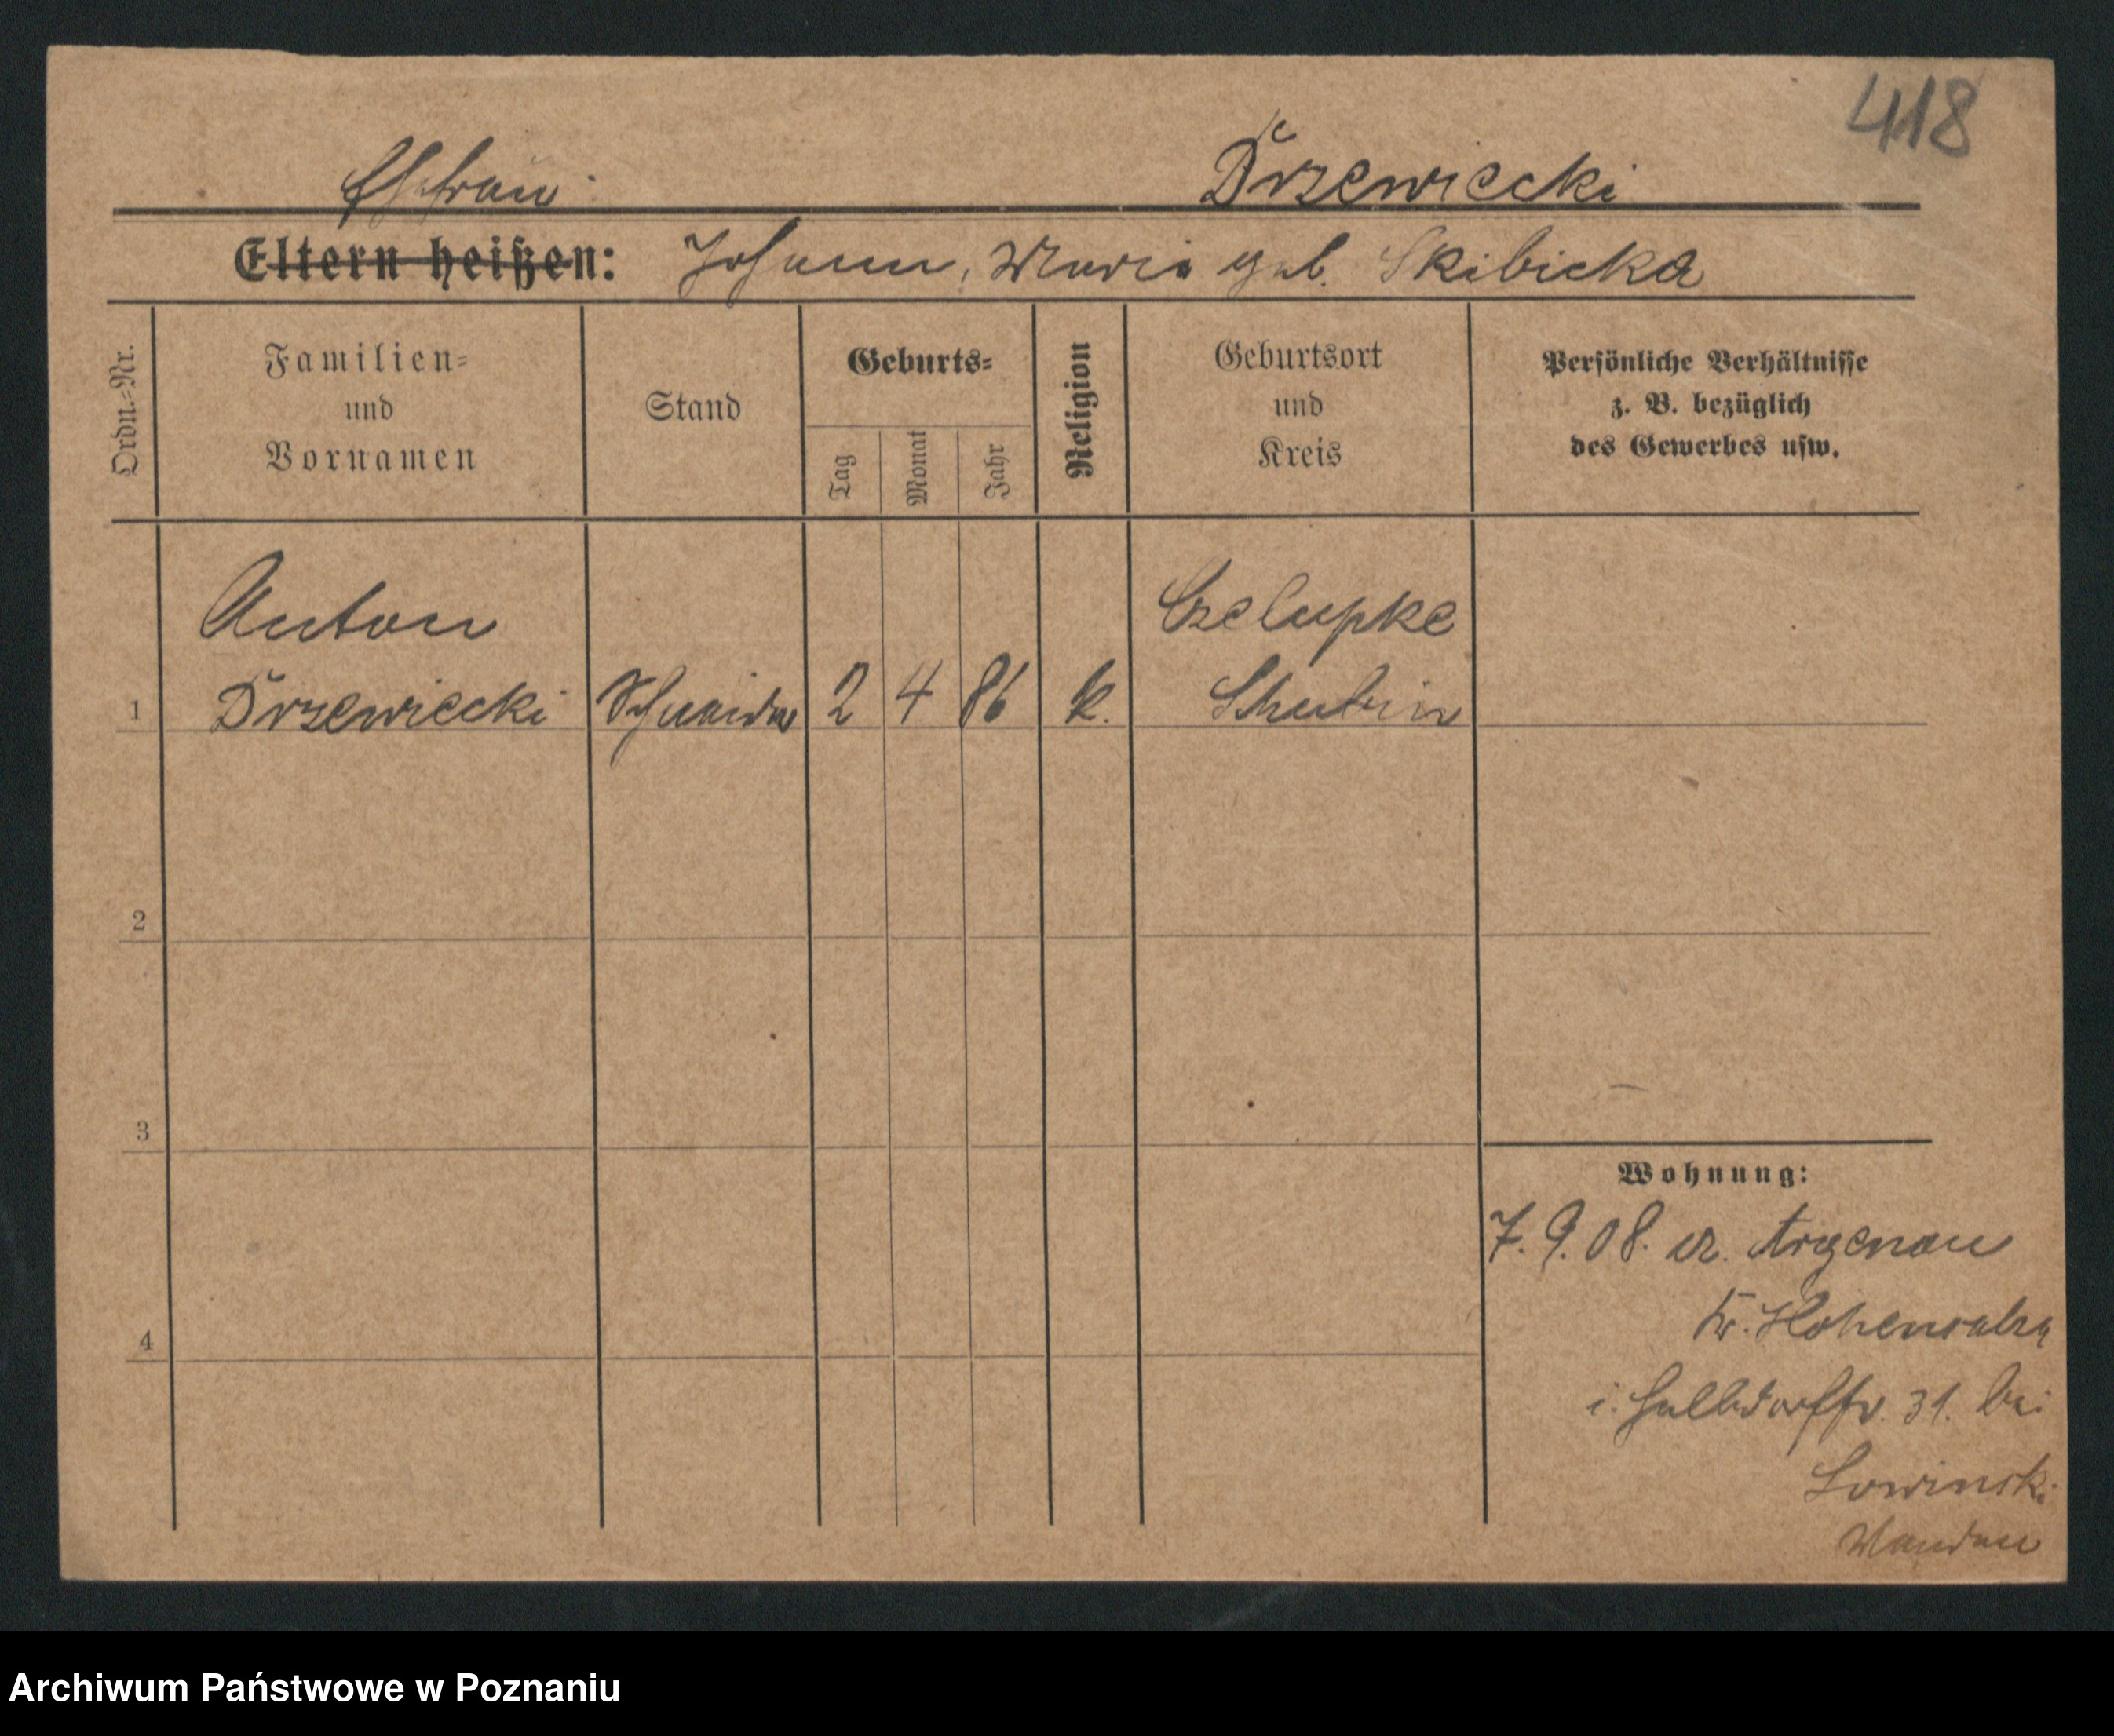 418
Ehefrau: Drzewiecki
Eltern heißen: Johann, Maria geb. Skibicka
Ordn.=Nr.
Familien=
und
Vornamen
Stand
Geburts=
Tag
Monat
Jahr
Religion
Geburtsort
und
Kreis
Persönliche Verhältnisse
z. B. bezüglich
des Gewerbes usw.
Anton Czelupke
1 Drzewiecki Schneider 2 4 86 k. Schubin
2
3
4
Wohnung:
7. 9. 08. Argenau
Kr. Hohensalza
i. Halbdorfstr. 31. bei
Lowinski
Archiwum Państwowe w Poznaniu